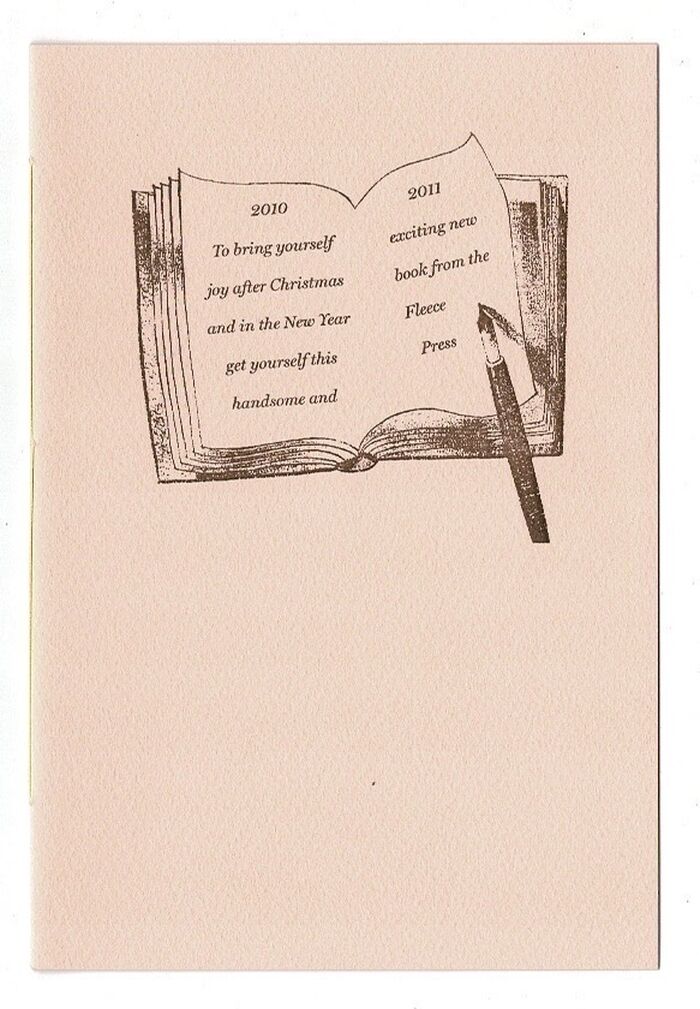 2010
To bring yourself
joy after Christmas
and in the New Year
get yourself this
handsome and
2011
exciting new
book from the
Fleece
Press